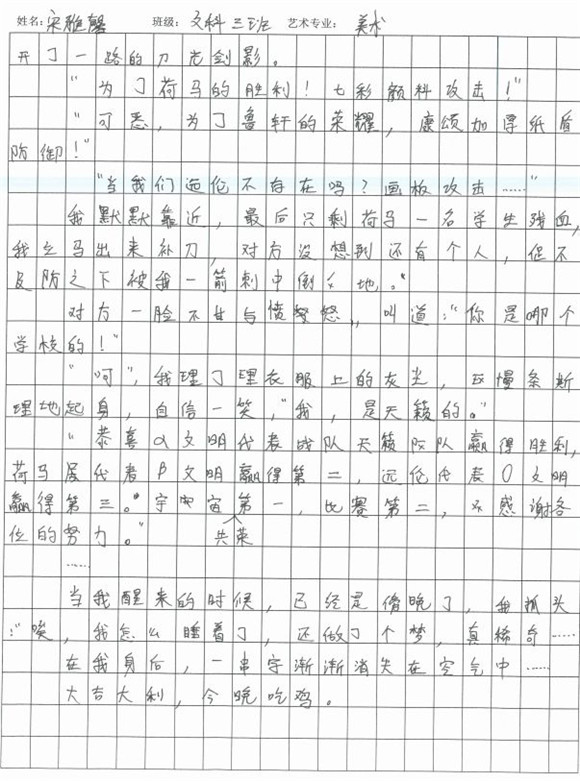 姓名：宋雅馨 班级：文科三班 艺术专业：美术
开了一路的刀光剑影。
"为了荷马的胜利！七彩颜料攻击！"
"可恶，为了鲁轩的荣耀，康颂加厚纸盾
防御！"
"当我们远伦不存在吗？画板攻击……"
我默默靠近，最后只剩荷马一名学生残血，
我立马出来补刀，对方没想到还有个人，促不
及防之下被我一箭刺中倒在地。"
对方一脸不甘与愤怒，叫道："你是哪个
学校的！"
"呵"，我理了理衣服上的灰尘，慢条斯
理地起身，自信一笑，"我，是天籁的。"
"恭喜α文明代表战队天籁队赢得胜利，
荷马居代者β文明赢得第二，远伦代表O文明
赢得第三。宇宙第一，比赛第二，感谢各
位的努力。"共荣
……
当我醒来的时候，已经是傍晚了，我抓头
："唉，我怎么睡着了，还做了个梦，真稀奇……
在我身后，一串字渐渐消失在空气中……
大吉大利，今晚吃鸡。